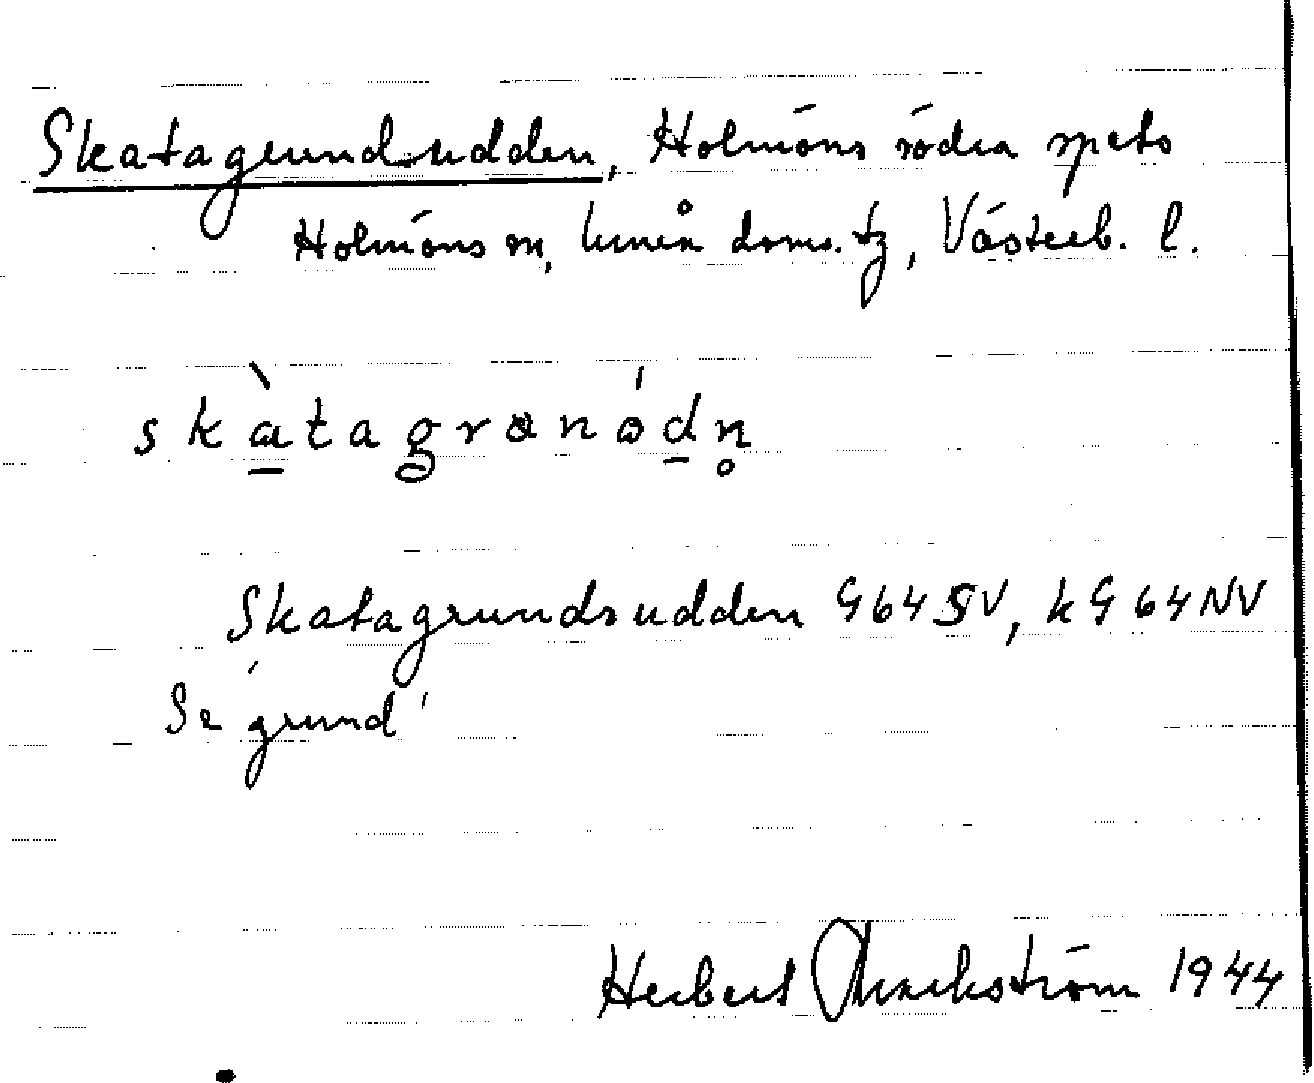 Skatagrundsudden, Holmöns södra spets
Holmöns sn, Umeå doms. tg, Västerb. l.
skàtagrɵnódn̥
Skatagrundsudden G64SV, kG64NV
Se 'grund'
Herbert Markström 1944